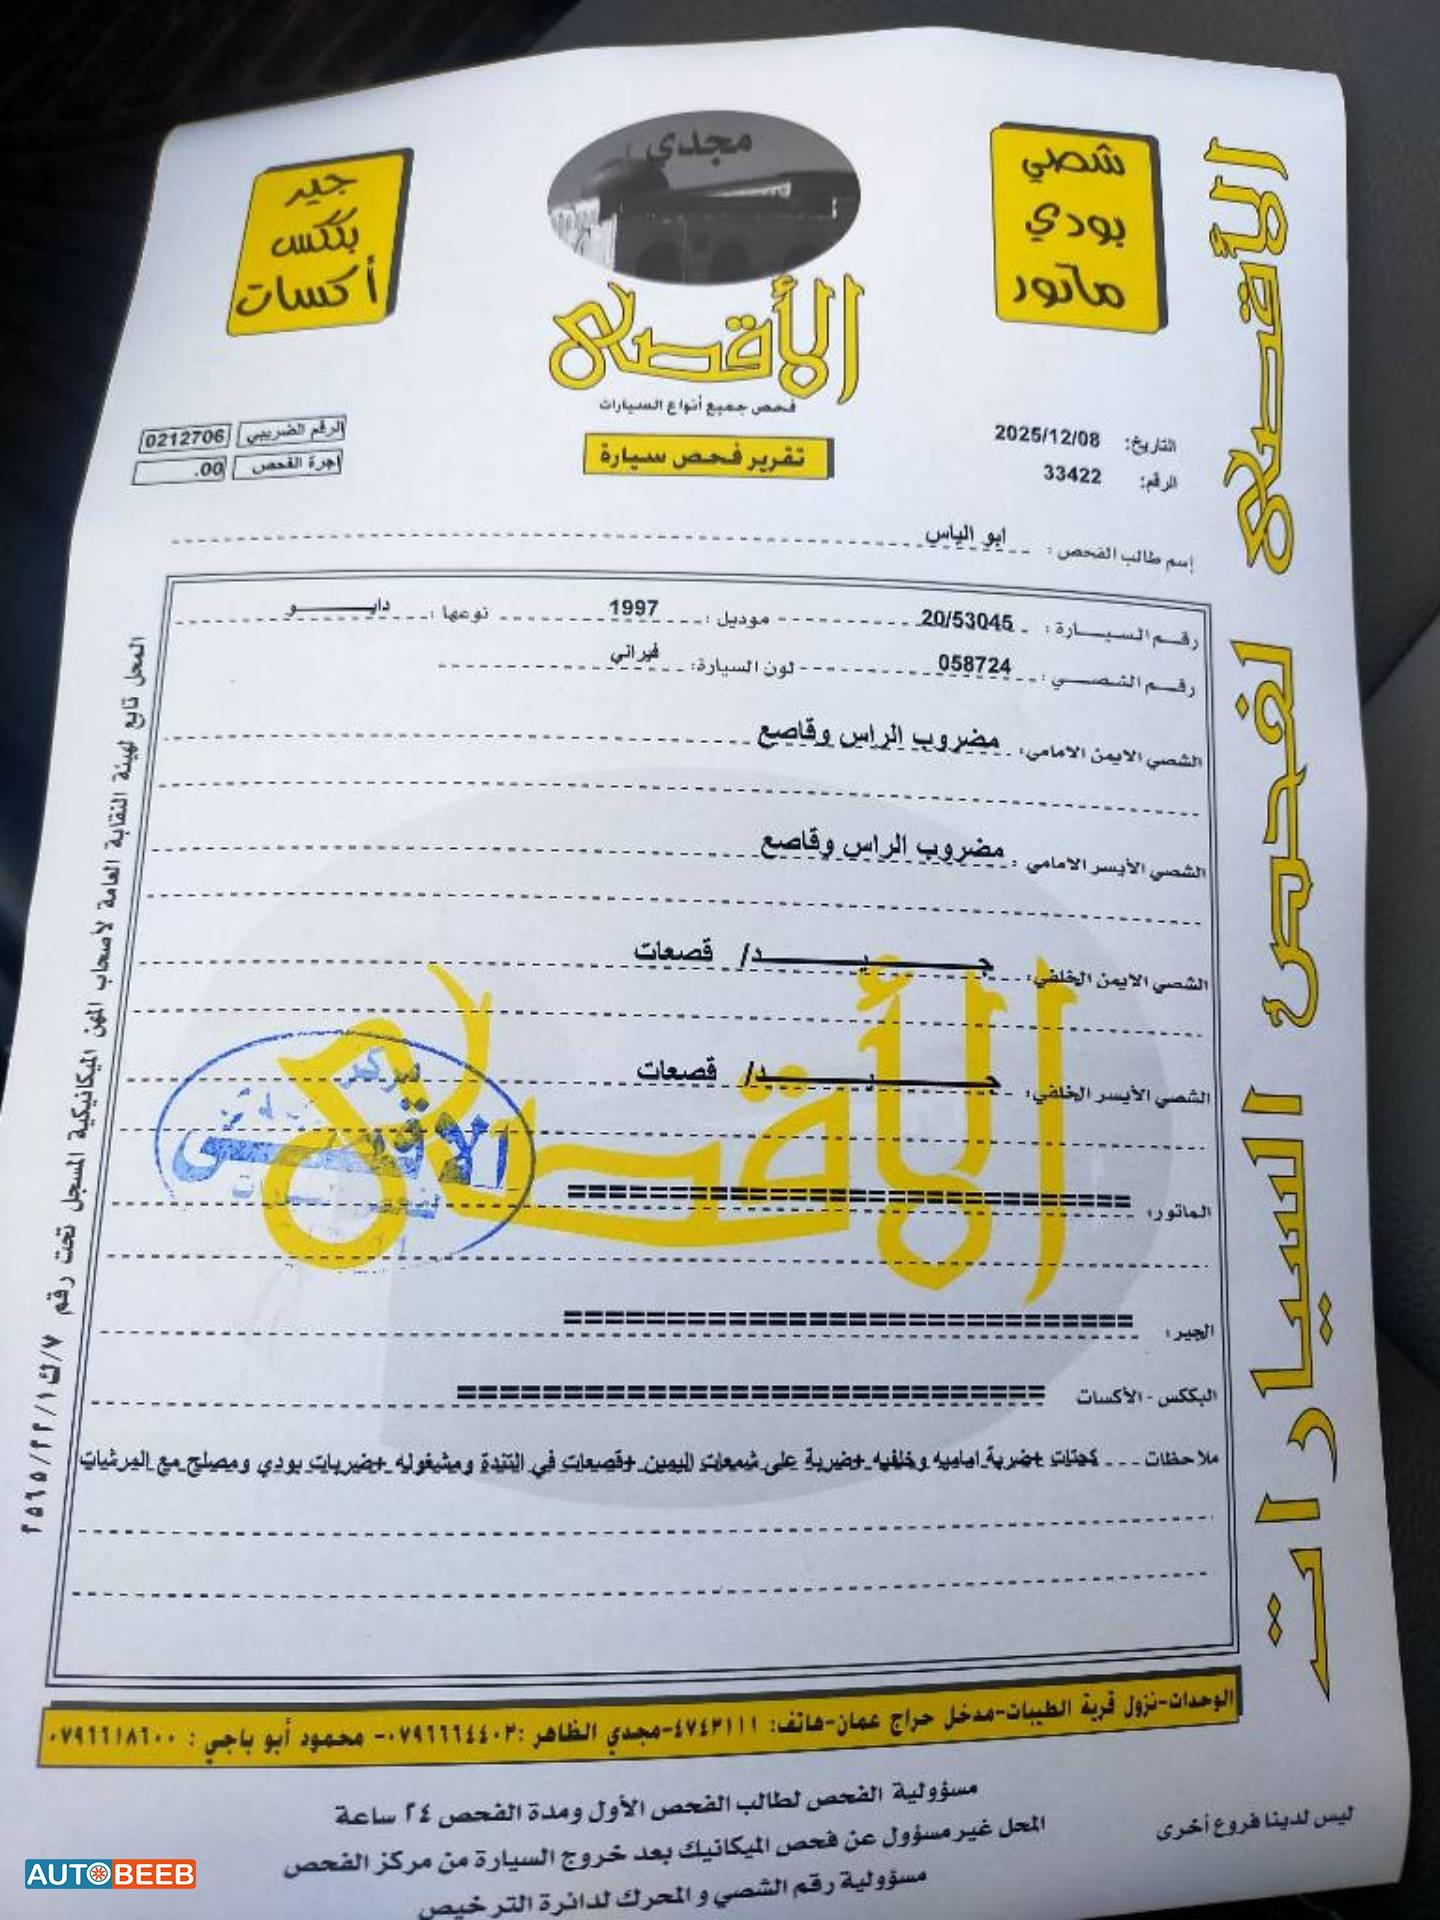 مجدي
شصي
بودي
ماتور
جير
بككس
أكسات
الأقصى
فحص جميع أنواع السيارات
تقرير فحص سيارة
التاريخ: 2025/12/08
الرقم: 33422
الرقم الضريبي 0212706
أجرة الفحص 00.
إسم طالب الفحص : ابو الياس
رقم السيارة : 20/53045 موديل : 1997 نوعها : دايو
رقم الشصي : 058724 لون السيارة: فيراني
الشصي الايمن الامامي: مضروب الراس وقاصع
الشصي الأيسر الامامي : مضروب الراس وقاصع
الشصي الايمن الخلفي: جيد/ قصعات
الشصي الأيسر الخلفي: جيد/ قصعات
الأقصى
مركز
الاقصى
الماتور: ==============================
الجير: ==============================
البككس - الأكسات ==============================
ملاحظات كجتات +ضربة اماميه وخلفيه +ضربة على شمعات اليمين +قصعات في التندة ومشغوله +ضربات بودي ومصلح مع المرشيات
الأقصى لفحص السيارات
المحل تابع لهيئة النقابة العامة لأصحاب المهن الميكانيكية المسجل تحت رقم ٧/ك/١/٢٢/٢٥٦٥
الوحدات-نزول قرية الطيبات-مدخل حراج عمان-هاتف: ٤٧٤٣١١١-مجدي الظاهر :٠٧٩٦٦٦٤٤٠٣- محمود أبو باجي : ٠٧٩٦٦١٨٦٠٠
مسؤولية الفحص لطالب الفحص الأول ومدة الفحص ٢٤ ساعة
المحل غير مسؤول عن فحص الميكانيك بعد خروج السيارة من مركز الفحص
مسؤولية رقم الشصي و المحرك لدائرة الترخيص
ليس لدينا فروع أخرى
AUTOBEEB